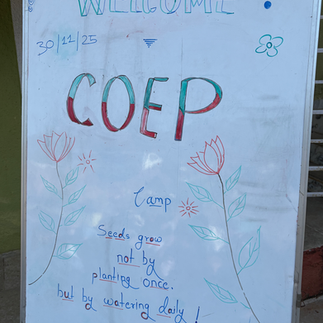 WELCOME
30/11/25
COEP
Camp
Seeds grow
not by
planting once.
but by watering daily!